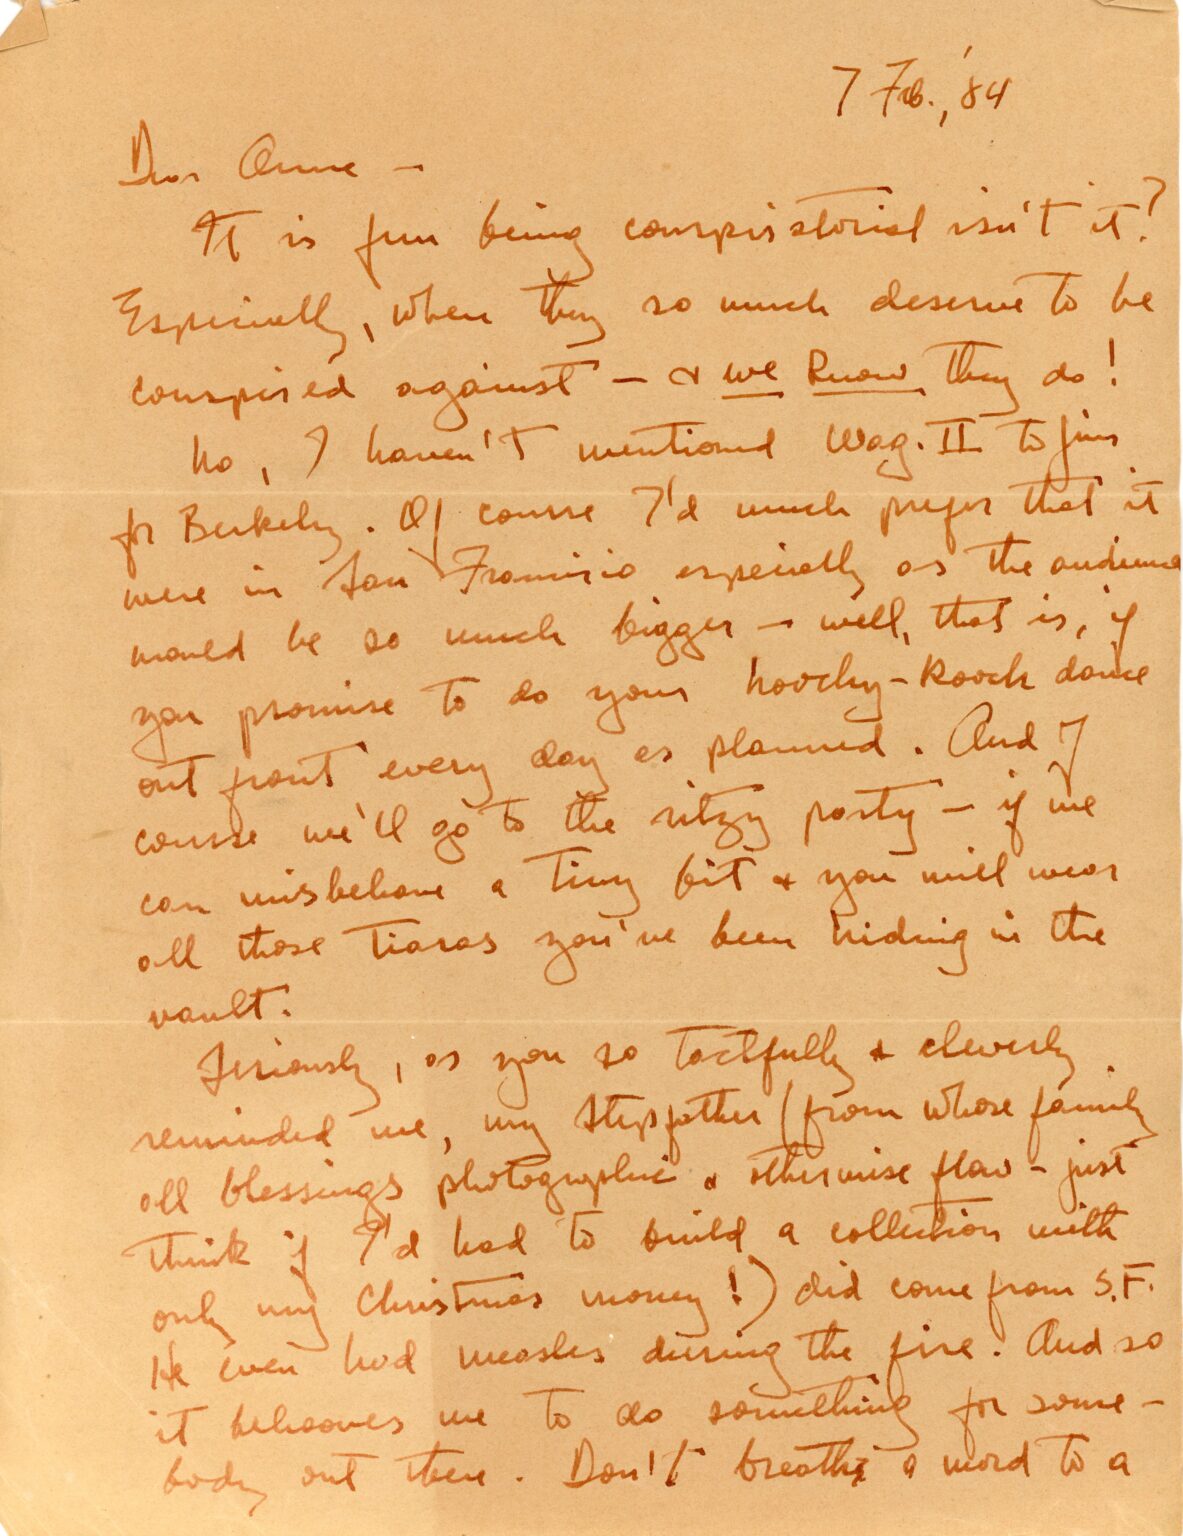 7 Feb., '84
Dear Anne —
It is fun being conspiratorial isn't it?
Especially, when they so much deserve to be
conspired against — & we know they do!
No, I haven't mentioned Wag. II to Jim
for Berkeley. Of course I'd much prefer that it
were in San Francisco especially as the audience
would be so much bigger — well, that is, if
you promise to do your hoochy-kooch dance
out front every day as planned. And of
course we'll go to the ritzy party — if we
can misbehave a tiny bit & you will wear
all those tiaras you've been hiding in the
vault.
Seriously, as you so tactfully & cleverly
reminded me, my stepfather (from whose family
all blessings photographic & otherwise flow — just
think if I'd had to build a collection with
only my Christmas money!) did come from S.F.
He even had measles during the fire. And so
it behooves me to do something for some-
body out there. Don't breathe a word to a